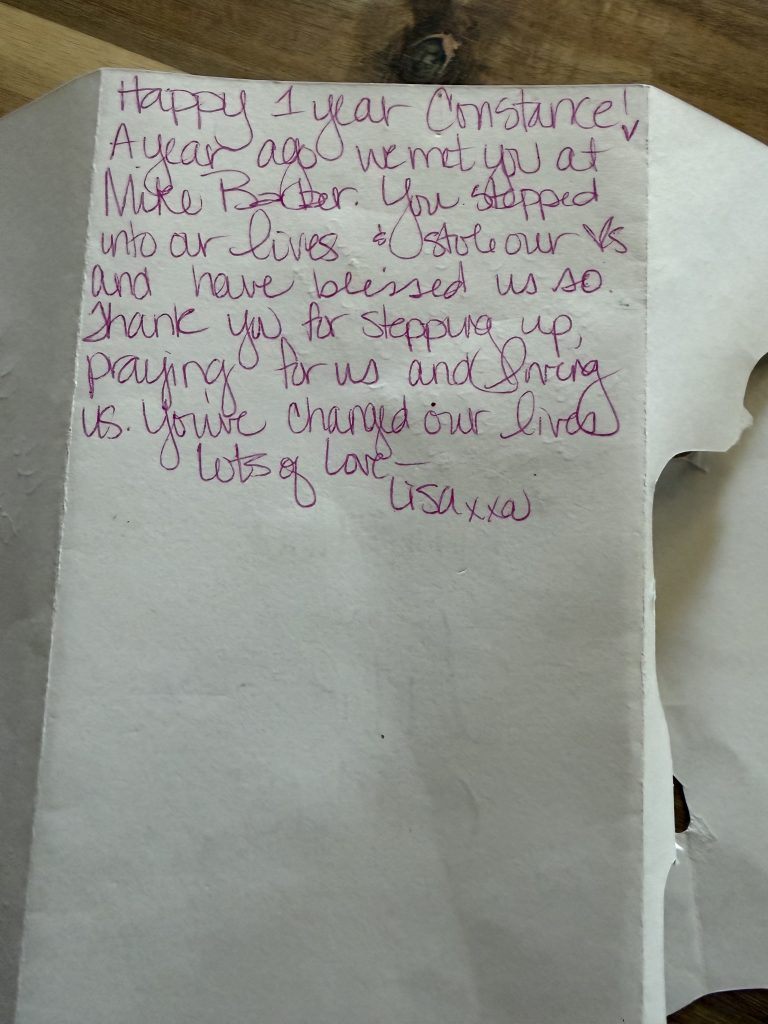 Happy 1 year Constance!
A year ago we met you at
Mike Barber. You stepped
into our lives & stole our ♥s
and have blessed us so.
Thank you for stepping up,
praying for us and loving
us. You've changed our lives
Lots of Love —
Lisa xxa